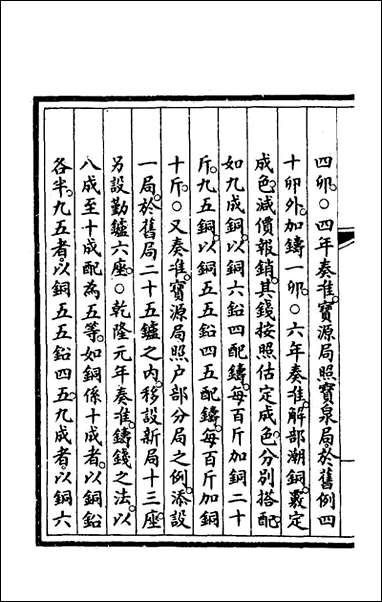 四卯。○四年奏准。寶源局照寶泉局於舊例四
十卯外。加鑄一卯。○六年奏准。解部潮銅。覈定
成色。減價報銷。其錢按照估定成色。分別搭配
如九成銅。以銅六鉛四配鑄。每百斤加銅二十
斤。九五銅。以銅五五鉛四五配鑄。每百斤加銅
十斤。○又奏准。寶源局照户部分局之例。添設
一局。於舊局二十五鑪之內。移設新局十三座
另設勤鑪六座。○乾隆元年奏准。鑄錢之法。以
八成至十成配為五等。如銅係十成者。以銅鉛
各半。九五者。以銅五五鉛四五。九成者。以銅六